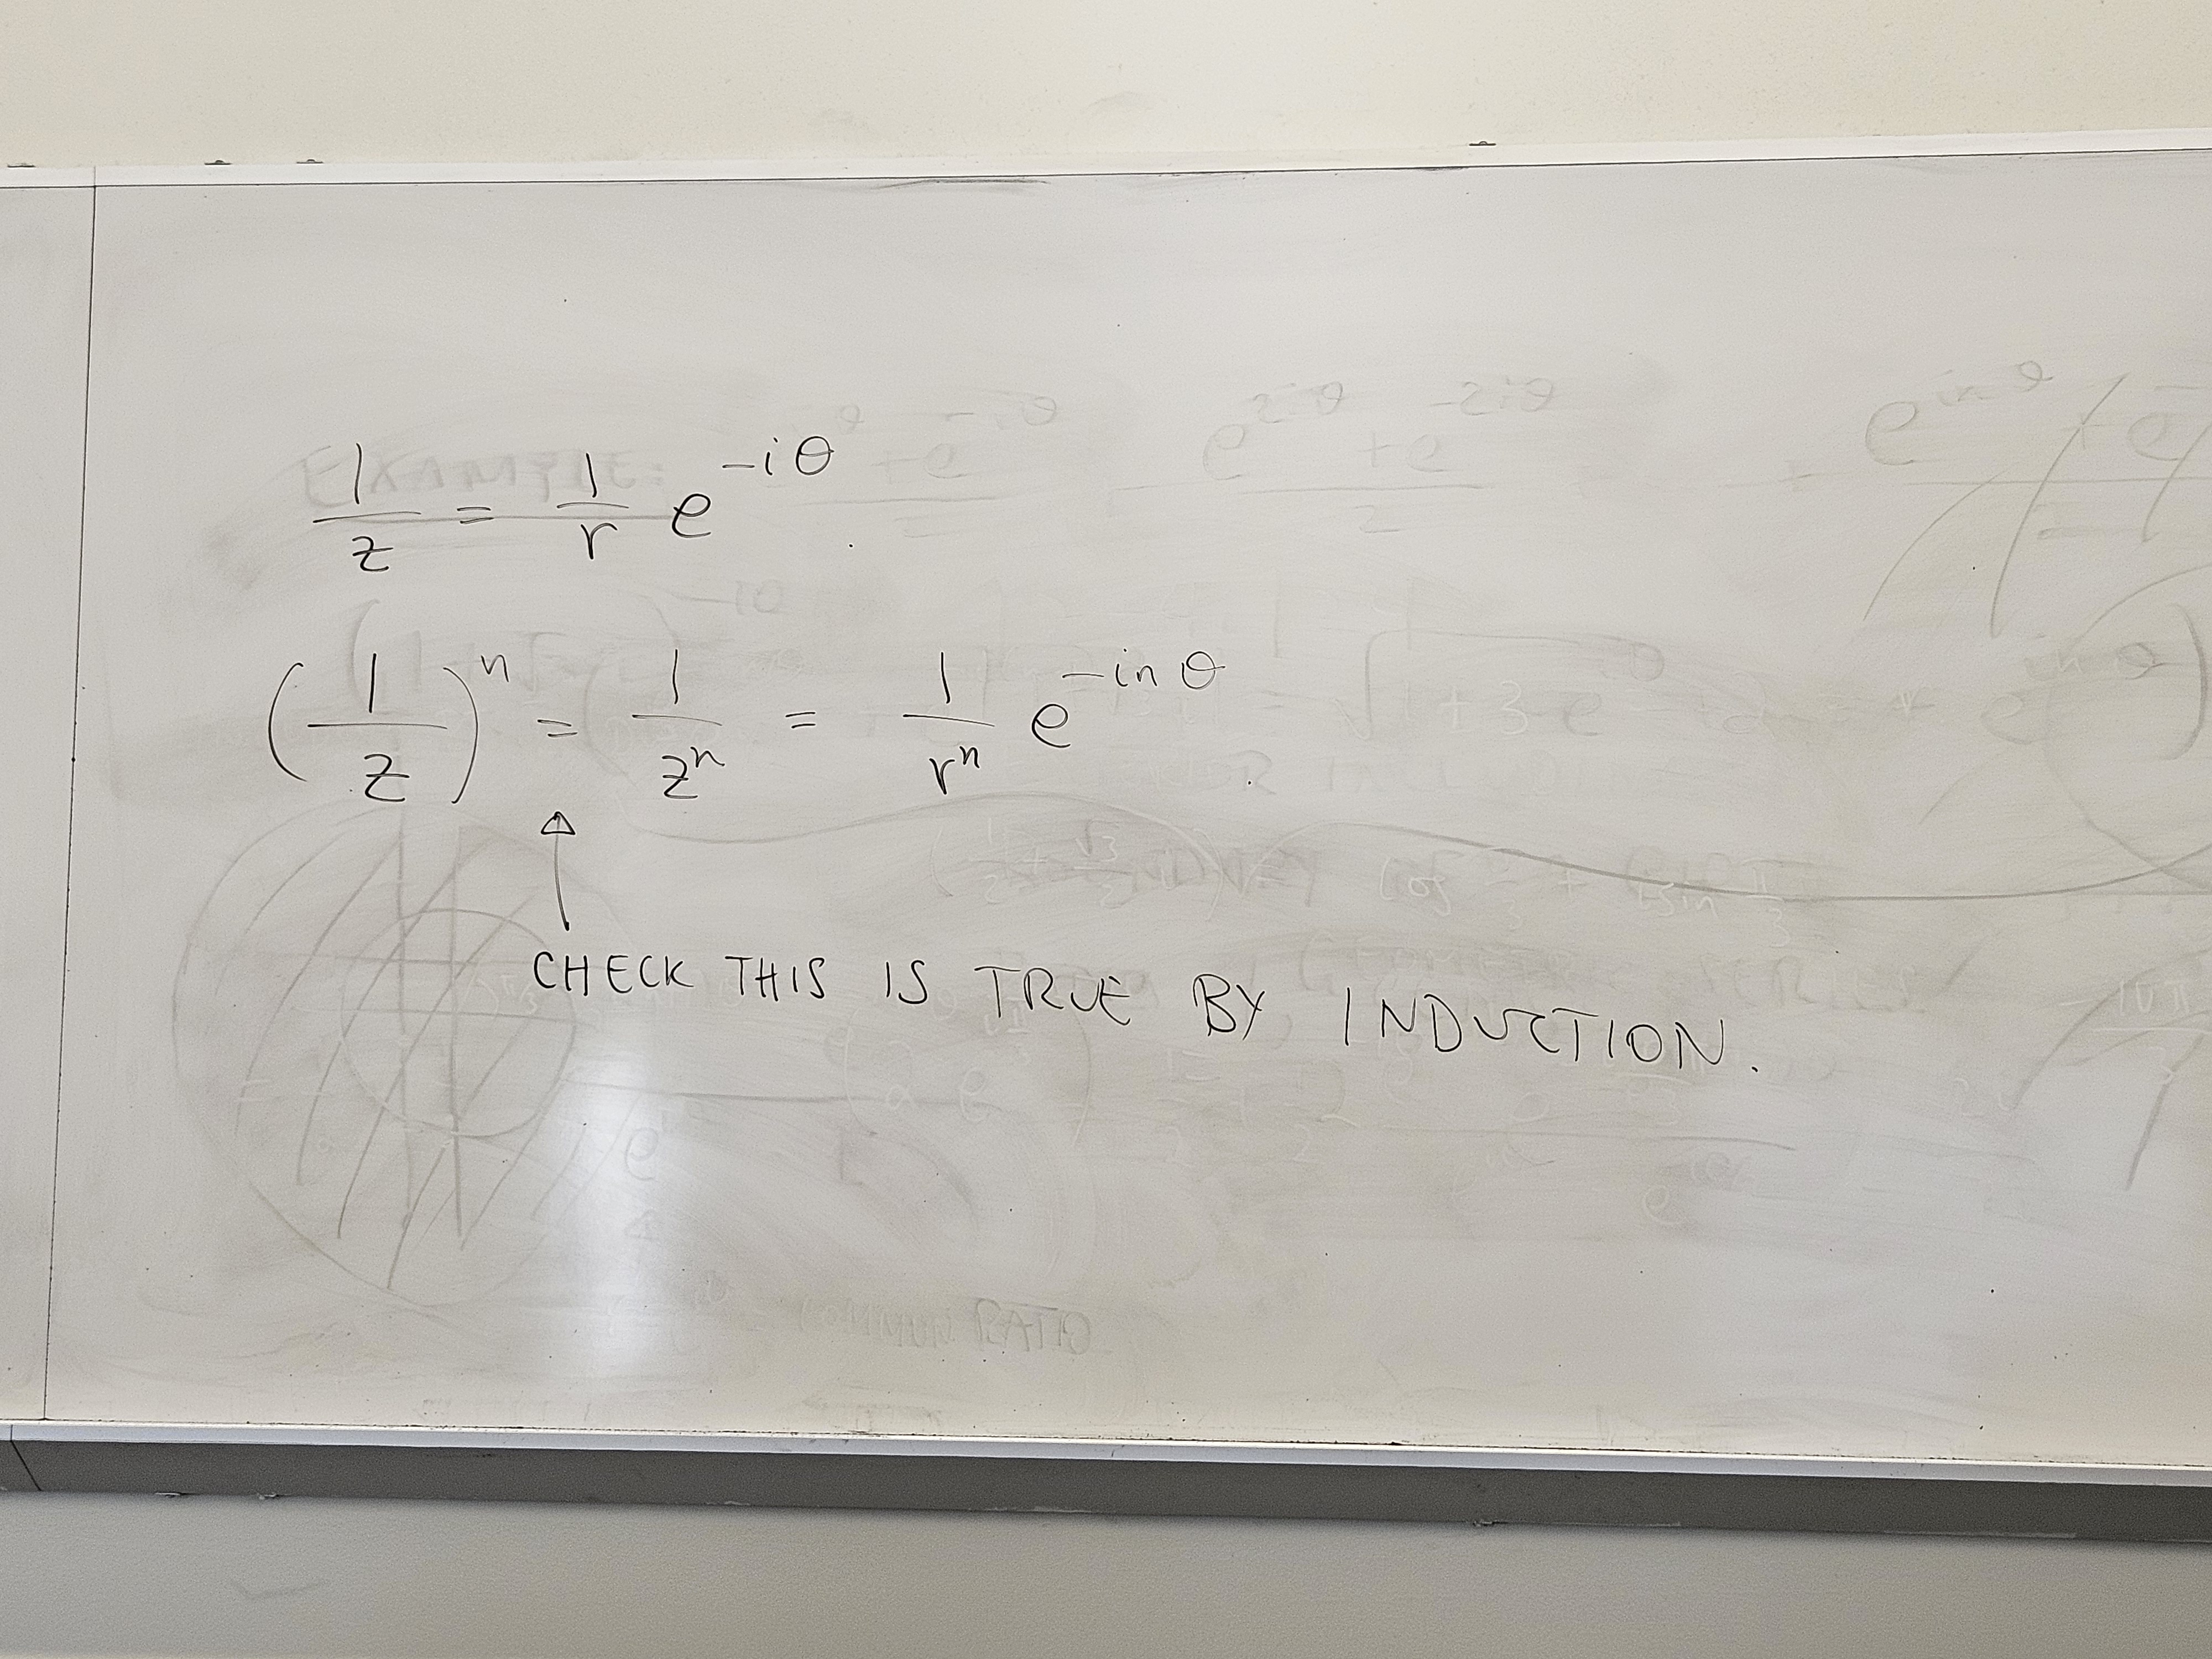 1/z = 1/r e^{-iθ}.
(1/z)^n = 1/z^n = 1/r^n e^{-inθ}.
↑
CHECK THIS IS TRUE BY INDUCTION.